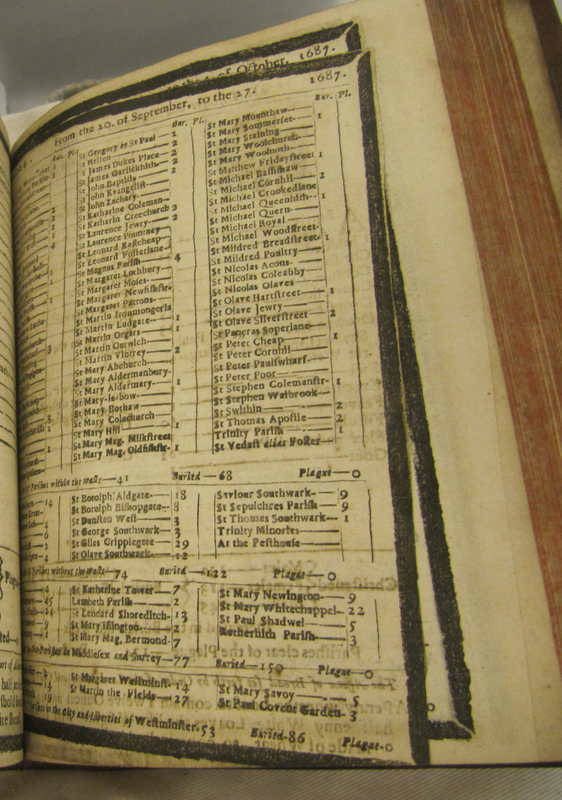 of October, 1687.
From the 20. of September, to the 27. 1687.
Bur. Pl.
St Gregory by St Paul — 2
St Hellen — 2
St James Dukes Place — 2
St James Garlickhith — 2
St John Baptist
St John Evangelist
St John Zachary
St Katharine Coleman
St Katharin Creechurch 2
St Laurence Jewry
St Laurence Pountney
St Leonard Eastcheap
St Leonard Fosterlane
St Magnus Parish — 4
St Margaret Lothbury
St Margaret Moses
St Margaret Newfishstr
St Margaret Pattons
St Martin Ironmongerla
St Martin Ludgate — 1
St Martin Orgars — 1
St Martin Outwich
St Martin Vintrey — 2
St Mary Abchurch
St Mary Aldermanbury
St Mary Aldermary — 1
St Mary-le-bow
St Mary Bothaw
St Mary Colechurch
St Mary Hill — 1
St Mary Mag. Milkstreet
St Mary Mag. Oldfishstr — 1
Bur. Pl.
St Mary Mounthaw
St Mary Sommerset — 1
St Mary Staining
St Mary Woolchurch
St Mary Woolnoth
St Matthew Fridaystreet 1
St Michael Bassishaw
St Michael Cornhil — 2
St Michael Crookedlane
St Michael Queenhith — 1
St Michael Quern
St Michael Royal
St Michael Woodstreet
St Mildred Breadstreet — 1
St Mildred Poultry
St Nicolas Acons
St Nicolas Coleabby
St Nicolas Olaves
St Olave Hartstreet — 1
St Olave Jewry
St Olave Silverstreet — 2
St Pancras Soperlane
St Peter Cheap — 1
St Peter Cornhil
St Peter Paulswharf
St Peter Poor
St Stephen Colemanstr — 1
St Stephen Walbrook
St Swithin — 2
St Thomas Apostle — 2
Trinity Parish — 1
St Vedast alias Foster
Parishes within the Walls — 41 Buried — 68 Plague — 0
St Botolph Aldgate — 18
St Botolph Bishopgate — 8
St Dunstan West — 3
St George Southwark — 3
St Giles Cripplegate — 29
St Olave Southwark — 12
Saviour Southwark — 9
St Sepulchres Parish — 9
St Thomas Southwark — 1
Trinity Minories
At the Pesthouse
Parishes without the Walls — 74 Buried — 122 Plague — 0
St Katharine Tower — 7
Lambeth Parish — 2
St Leonard Shoreditch — 13
St Mary Islington — 2
St Mary Mag. Bermond. 7
St Mary Newington — 9
St Mary Whitechappel — 22
St Paul Shadwel — 5
Rotherhith Parish — 3
Parishes in Middlesex and Surrey — 77 Buried — 150 Plague — 0
St Margaret Westminst — 14
St Martin the Fields — 27
St Mary Savoy — 5
St Paul Covent Garden — 3
in the City and Liberties of Westminster. 53 Buried — 86 Plague — 0